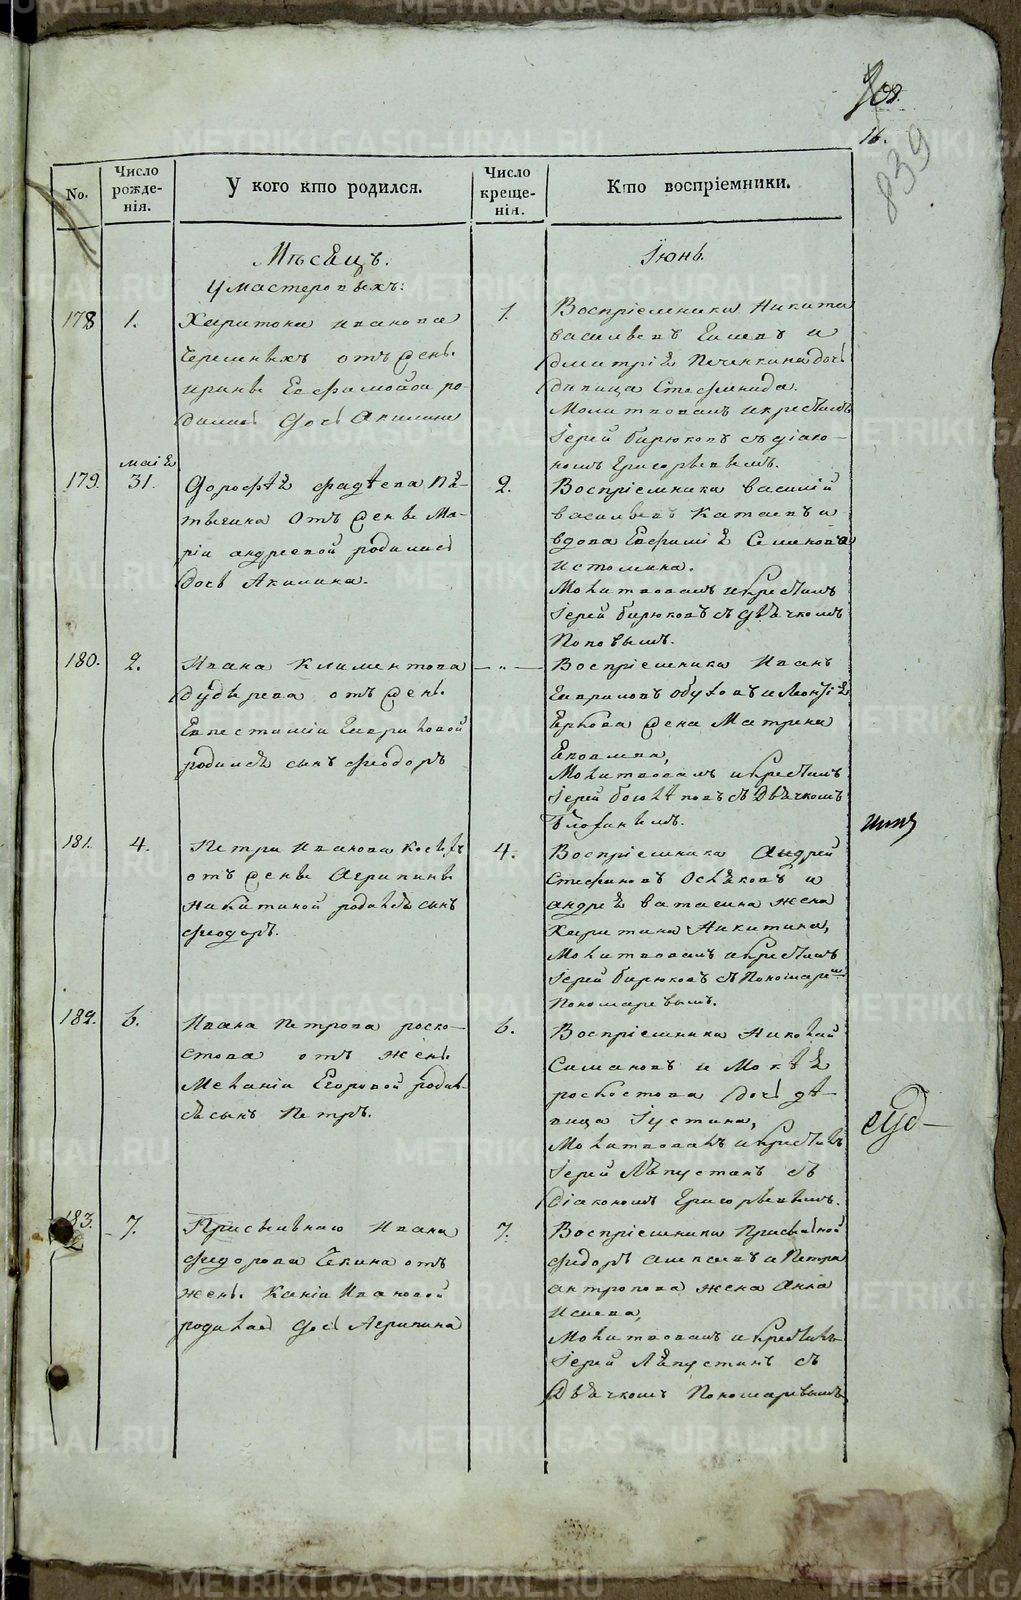 16.
839
No.
Число рожде-нія.
У кого кто родился.
Число креще-нія.
Кто воспріемники.
Мѣсяцъ.
Іюнь.
У мастеровыхъ:
178
1.
Харитона Иванова
Черемныхъ отъ жены
Ирины Евфимовой ро-
дилась дочь Акилина
1.
Воспріемники Никита
Васильевъ и
Дмитрія Печенкина дочь
дѣвица Стефанида.
Молитвовалъ и крестилъ
Іерей Бирюковъ съ діако-
номъ Григорьевымъ.
179.
маія
31.
Дорофея Фадѣева
отъ жены Ма-
ріи Андреевой родилась
дочь Акилина.
2.
Воспріемники Василій
Васильевъ Катаевъ и
вдова Евфимія Семенова
Истомина.
Молитвовалъ и крестилъ
Іерей Бирюковъ съ дьячкомъ
Поповымъ.
180.
2.
Ивана Климентова
отъ жены
Евпестиміи Гавриловой
родился сынъ Феодоръ
— „ —
Воспріемники Иванъ
Гавриловъ Обуховъ и Леонтія
жена Матрена
Яковлева,
Молитвовалъ и крестилъ
Іерей съ дьячкомъ
181.
4.
Петра Иванова
отъ жены Агрипины
Никитиной родился сынъ
Феодоръ.
4.
Воспріемники Андрей
Стефановъ и
Андрея Ватагина жена
Харитина Никитина,
Молитвовалъ и крестилъ
Іерей Бирюковъ съ Пономаремъ
Пономаревымъ.
182.
6.
Ивана Петрова Роско-
стова отъ жены
Меланіи Егоровой родил-
ся сынъ Петръ.
6.
Воспріемники Николай
Симановъ и Мокея
Роскостова дочь дѣ-
вица Іустина,
Молитвовалъ и крестилъ
Іерей Ляпустинъ съ
Діакономъ Григорьевымъ.
183.
7.
Присыльнаго Ивана
Федорова Чекина отъ
жены Ивановой
родилась дочь Агрипина
7.
Воспріемники Присыльной
Федоръ и Петра
Антропова жена Анна
Исаева,
Молитвовалъ и крестилъ
Іерей Ляпустинъ съ
Дьячкомъ Пономаревымъ
METRIKI.GASO-URAL.RU